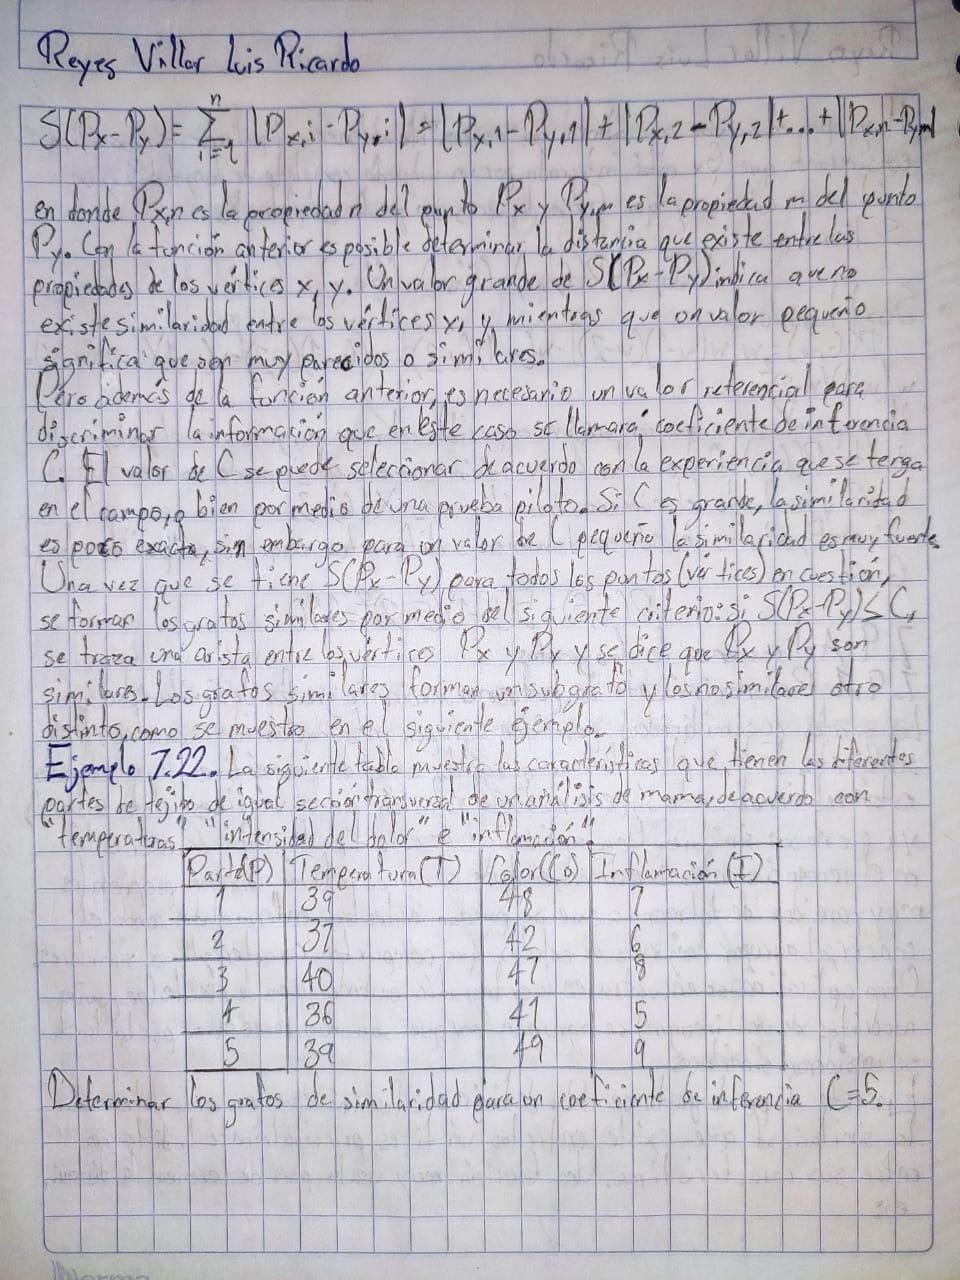 Reyes Villar Luis Ricardo
S(Px-Py)= Σ n i=1 |Px,i - Py,i| = |Px,1-Py,1| + |Px,2-Py,2|+...+|Px,n-Py,m|
en donde Px,n es la propiedad n del punto Px y Py,m es la propiedad m del punto
Py. Con la función anterior es posible determinar la distancia que existe entre las
propiedades de los vértices x, y. Un valor grande de S(Px-Py) indica que no
existe similaridad entre los vértices x, y, mientras que un valor pequeño
significa que son muy parecidos o similares.
Pero además de la función anterior, es necesario un valor referencial para
discriminar la información que en este caso se llamará coeficiente de inferencia
C. El valor de C se puede seleccionar de acuerdo con la experiencia que se tenga
en el campo, o bien por medio de una prueba piloto. Si C es grande, la similaridad
es poco exacta, sin embargo para un valor de C pequeño la similaridad es muy fuerte.
Una vez que se tiene S(Px-Py) para todos los puntos (vértices) en cuestión,
se forman los grafos similares por medio del siguiente criterio: si S(Px-Py)≤C,
se traza una arista entre los vértices Px y Py y se dice que Px y Py son
similares. Los grafos similares forman un subgrafo y los no similares otro
distinto, como se muestra en el siguiente ejemplo.
Ejemplo 7.22. La siguiente tabla muestra las características que tienen las diferentes
partes de tejido de igual sección transversal de un análisis de mama, de acuerdo con
"temperaturas" "intensidad del color" e "inflamación".
Parte(P) Temperatura(T) Color(Co) Inflamación (I)
1 39 48 7
2 37 42 6
3 40 47 8
4 36 41 5
5 39 49 9
Determinar los grafos de similaridad para un coeficiente de inferencia C=5.